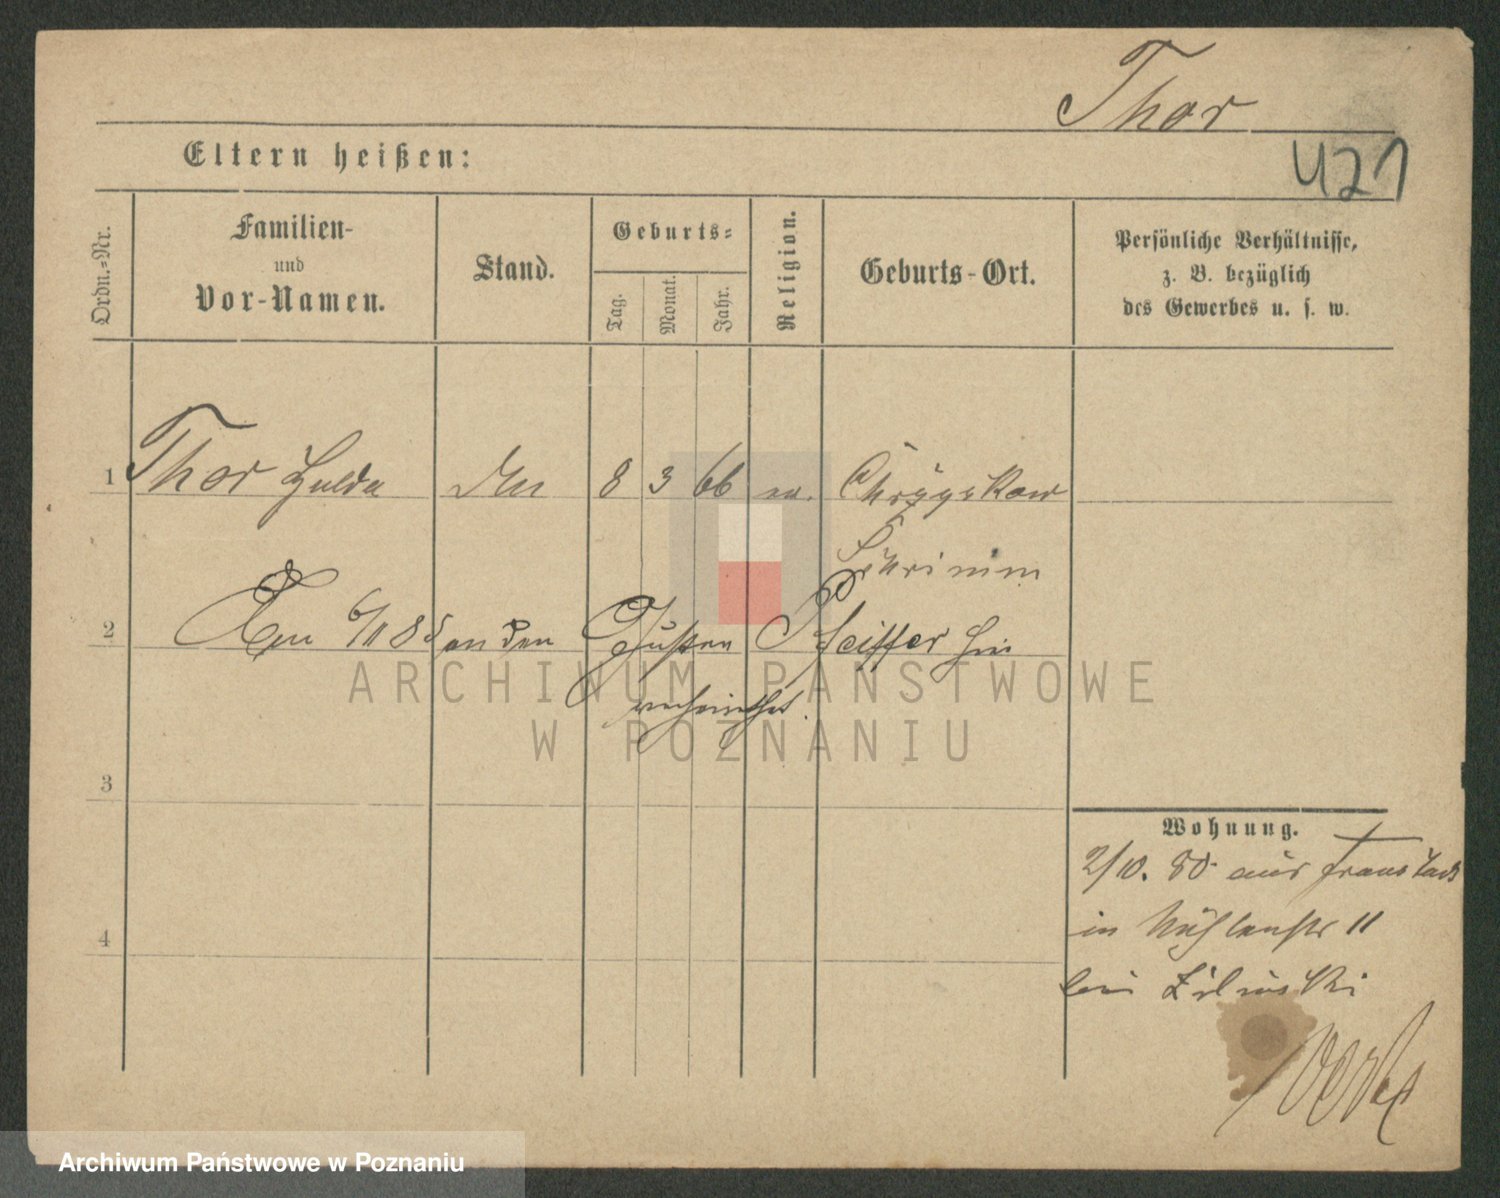 Thor
421
Eltern heißen:
Ordn.-Nr.
Familien-
und
Vor-Namen.
Stand.
Geburts-
Tag.
Monat.
Jahr.
Religion.
Geburts-Ort.
Persönliche Verhältnisse,
z. B. bezüglich
des Gewerbes u. s. w.
1 Thor Hulda 8 3 66 ev.
Schrimm
2 Am 6/11 85 an den Pfeiffer hier
verheirathet.
ARCHIWUM PAŃSTWOWE
W POZNANIU
3
Wohnung.
2/10. 80 aus Fraustadt
in Mühlenstr 11
4
bei Zilinski
Archiwum Państwowe w Poznaniu